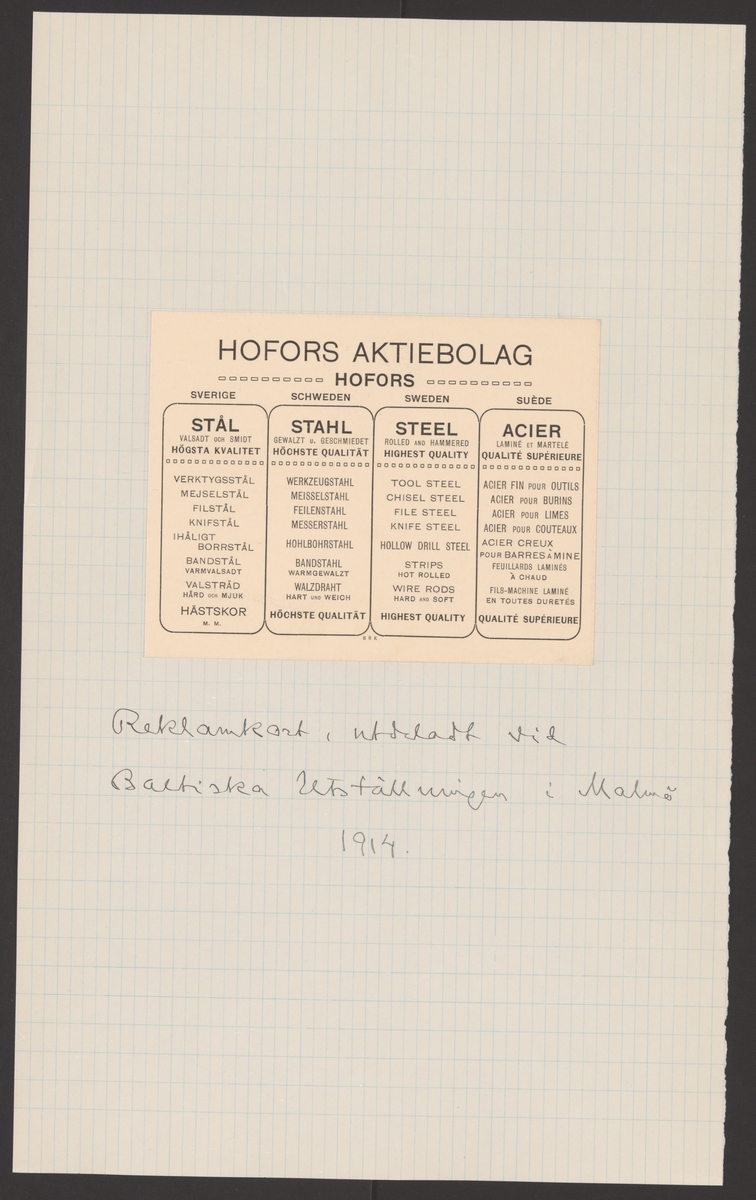 HOFORS AKTIEBOLAG
HOFORS
SVERIGE
STÅL
VALSADT OCH SMIDT
HÖGSTA KVALITET
VERKTYGSSTÅL
MEJSELSTÅL
FILSTÅL
KNIFSTÅL
IHÅLIGT
BORRSTÅL
BANDSTÅL
VARMVALSADT
VALSTRÅD
HÅRD OCH MJUK
HÄSTSKOR
M. M.
SCHWEDEN
STAHL
GEWALZT U. GESCHMIEDET
HÖCHSTE QUALITÄT
WERKZEUGSTAHL
MEISSELSTAHL
FEILENSTAHL
MESSERSTAHL
HOHLBOHRSTAHL
BANDSTAHL
WARMGEWALZT
WALZDRAHT
HART UND WEICH
HÖCHSTE QUALITÄT
SWEDEN
STEEL
ROLLED AND HAMMERED
HIGHEST QUALITY
TOOL STEEL
CHISEL STEEL
FILE STEEL
KNIFE STEEL
HOLLOW DRILL STEEL
STRIPS
HOT ROLLED
WIRE RODS
HARD AND SOFT
HIGHEST QUALITY
SUÈDE
ACIER
LAMINÉ ET MARTELÉ
QUALITÉ SUPÉRIEURE
ACIER FIN POUR OUTILS
ACIER POUR BURINS
ACIER POUR LIMES
ACIER POUR COUTEAUX
ACIER CREUX
POUR BARRES À MINE
FEUILLARDS LAMINÉS
À CHAUD
FILS-MACHINE LAMINÉ
EN TOUTES DURETÉS
QUALITÉ SUPÉRIEURE
Reklamkort, utdeladt vid
Baltiska Utställningen i Malmö
1914.